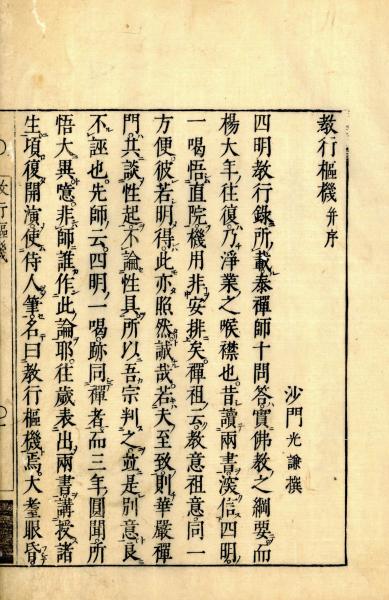 教行樞機并序
沙門光謙撰
四明教行錄所載泰禪師十問答實佛教之綱要而
楊大年往復乃淨業之喉襟也昔讀兩書深信四明
一喝悟直院機用非安排矣禪祖云教意祖意同一
方便彼若明得此亦照然誠哉若夫至致則華嚴禪
門共談性起不論性具所以吾宗判之並是別意良
不誣也先師云四明一喝跡同禪者而三年圓聞所
悟大異噫非師誰作此論耶往歲表出兩書講授諸
生頃復開演使侍人筆名曰教行樞機焉大耋眼昏
教行樞機